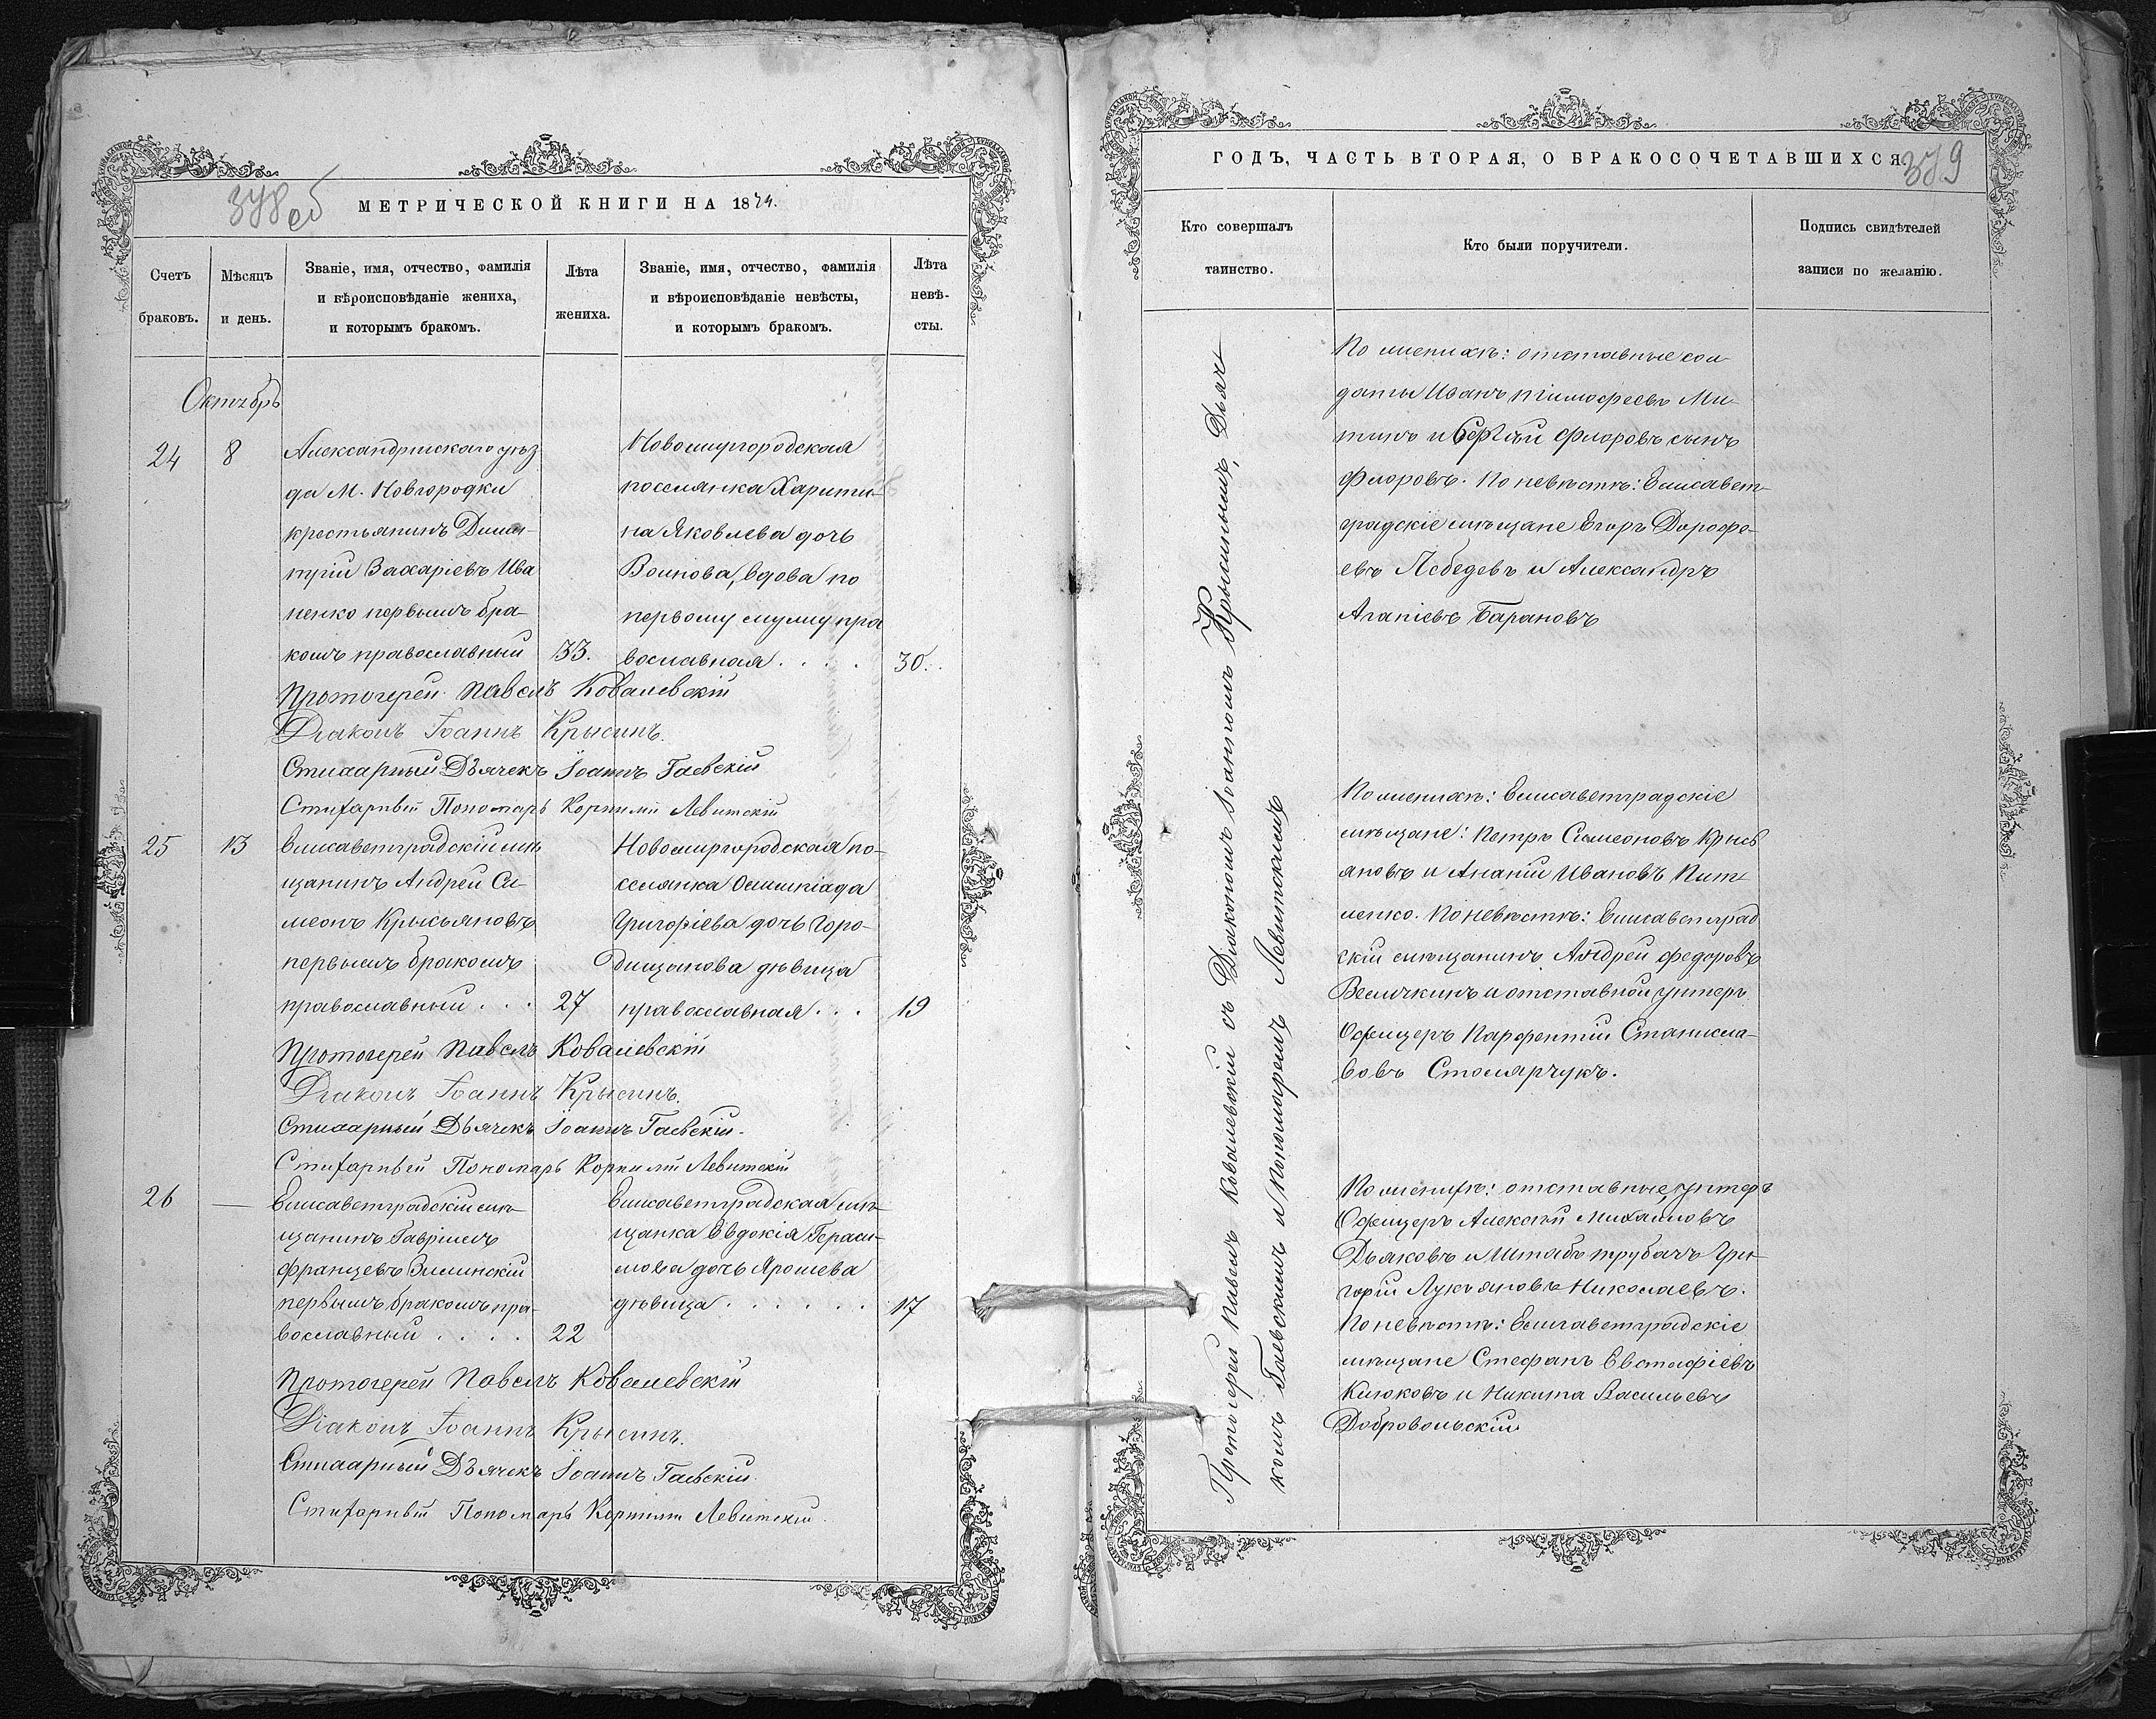 378 об
МЕТРИЧЕСКОЙ КНИГИ НА 1874.
Счетъ браковъ.
Мѣсяцъ и день.
Званіе, имя, отчество, фамилія
и вѣроисповѣданіе жениха,
и которымъ бракомъ.
Лѣта жениха.
Званіе, имя, отчество, фамилія
и вѣроисповѣданіе невѣсты,
и которымъ бракомъ.
Лѣта невѣ-
сты.
Октябрь
24
8
Александрійскаго уѣз
да М. Новгородки
крестьянинъ Дими-
трій Захаріевъ Ива
ненко первымъ бра-
комъ православный
33.
Новомиргородская
поселянка Харити-
на Яковлева дочь
Воинова, вдова по
первому мужу пра
вославная . . . .
30.
Протоіерей Павелъ Ковалевскій
Діаконъ Іоаннъ Крысинъ.
Стихарный Дьячекъ Іоаннъ Гаевскій
Стихарный Пономарь Корнилій Левитскій
25
13
Елисаветградскій мѣ
щанинъ Андрей Си-
меонъ Крысьяновъ
первымъ бракомъ
православный . . .
27
Новомиргородская по-
селянка Олимпіада
Григоріева дочь Горо-
дищанова дѣвица
православная . . .
19
Протоіерей Павелъ Ковалевскій
Діаконъ Іоаннъ Крысинъ.
Стихарный Дьячекъ Іоаннъ Гаевскій.
Стихарный Пономарь Корнилій Левитскій
26
—
Елисаветградскій мѣ-
щанинъ Гавріилъ
Францевъ Зилинскій
первымъ бракомъ пра-
вославный . . . .
22
Елисаветградская мѣ-
щанка Евдокія Гераси-
мова дочь Ярошева
дѣвица . . . . . .
17
Протоіерей Павелъ Ковалевскій
Діаконъ Іоаннъ Крысинъ.
Стихарный Дьячекъ Іоаннъ Гаевскій.
Стихарный Пономарь Корнилій Левитскій.
ГОДЪ, ЧАСТЬ ВТОРАЯ, О БРАКОСОЧЕТАВШИХСЯ
379
Кто совершалъ
таинство.
Кто были поручители.
Подпись свидѣтелей
записи по желанію.
Протоіерей Павелъ Ковалевскій съ Діакономъ Іоанномъ Крысинымъ, Дьяч-
комъ Гаевскимъ и Пономаремъ Левитскимъ
По женихѣ: отставные сол-
даты Иванъ Тимофеевъ Ми-
тинъ и Сергѣй Флоровъ сынъ
Флоровъ. По невѣстѣ: Елисавет-
градскіе мѣщане Егоръ Дорофе-
евъ Лебедевъ и Александръ
Агапіевъ Барановъ
По женихѣ: Елисаветградскіе
мѣщане: Петръ Симеоновъ Крысь
яновъ и Ананій Ивановъ Пит
ленко. По невѣстѣ: Елисаветград
скій мѣщанинъ Андрей Федоровъ
Величкинъ и отставной унтеръ
Офицеръ Парфентій Станисла-
вовъ Столярчукъ.
По женихѣ: отставные, унтеръ
Офицеръ Алексѣй Михайловъ
Дьяковъ и Штабъ трубачъ Гри-
горій Лукьяновъ Николаевъ.
По невѣстѣ: Елисаветградскіе
мѣщане Стефанъ Евстафіевъ
Килоковъ и Никита Васильевъ
Добровольскій